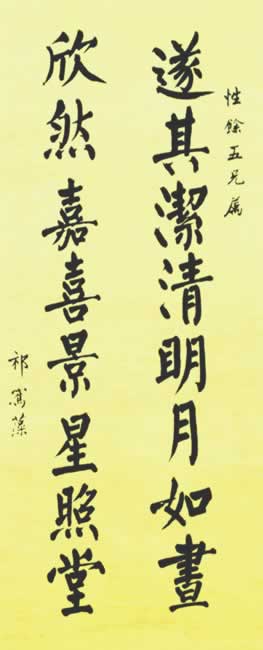 性餘五兄屬
遂其潔清明月如晝
欣然嘉喜景星照堂
祁寯藻